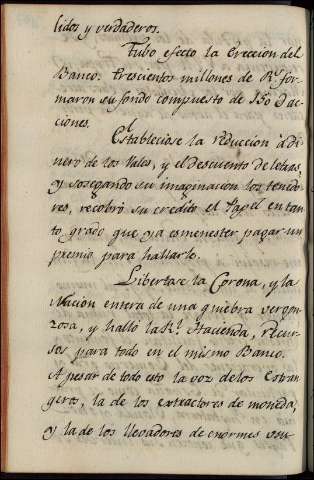 lidos y verdaderos.
Tubo efecto la Ereccion del
Banco. Trescientos millones de R.^s for-
maron su fondo compuesto de 150 D ac-
ciones.
Establecióse la reduccion à di-
nero de los Vales, y el descuento de letras,
y sosegando su imaginacion los tenedo-
res, recobró su credito el Papel en tan-
to grado que ya es menester pagar un
premio para hallarle.
Libertase la Corona, y la
Nacion entera de una quiebra vergon-
zosa, y halló la R.^l Hacienda, recur-
sos para todo en el mismo Banco.
A pesar de todo esto la voz de los Estran-
geros, la de los extractores de moneda,
y la de los llevadores de enormes usu-